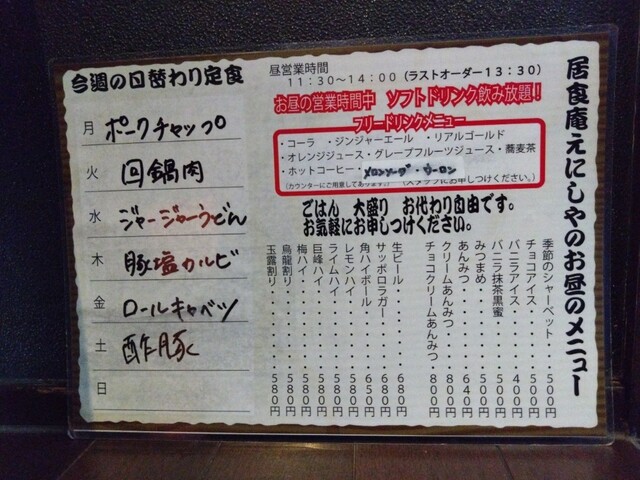 居食庵えにしやのお昼のメニュー
昼営業時間
11:30～14:00(ラストオーダー13:30)
お昼の営業時間中 ソフトドリンク飲み放題！
フリードリンクメニュー
・コーラ ・ジンジャーエール ・リアルゴールド
・オレンジジュース・グレープフルーツジュース・蕎麦茶
・ホットコーヒー・メロンソーダ・ウーロン
(カウンターにご用意してあります。) (スタッフにお申しつけください。)
ごはん 大盛り お代わり自由です。
お気軽にお申しつけください。
季節のシャーベット・・500円
チョコアイス・・・・・500円
バニラアイス・・・・・400円
バニラ抹茶黒蜜・・・・500円
みつまめ・・・・・・・500円
あんみつ・・・・・・・640円
クリームあんみつ・・・800円
チョコクリームあんみつ・・800円
生ビール・・・・・・・680円
サッポロラガー・・・・680円
角ハイボール・・・・・650円
レモンハイ・・・・・・580円
ライムハイ・・・・・・580円
巨峰ハイ・・・・・・・580円
梅ハイ・・・・・・・・580円
烏龍割り・・・・・・・580円
玉露割り・・・・・・・580円
今週の日替わり定食
月 ポークチャップ
火 回鍋肉
水 ジャージャーうどん
木 豚塩カルビ
金 ロールキャベツ
土 酢豚
日